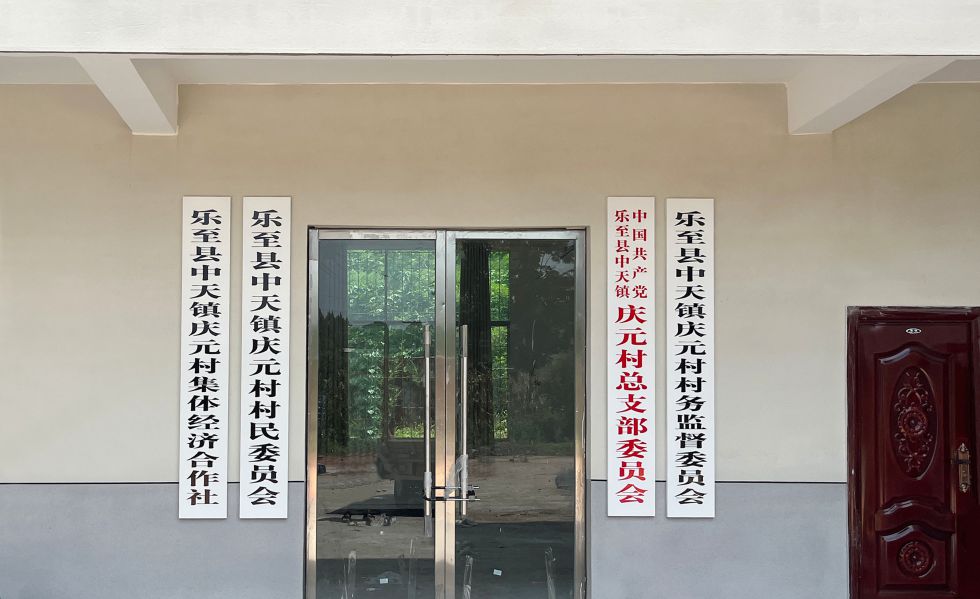 乐至县中天镇庆元村集体经济合作社
乐至县中天镇庆元村村民委员会
中国共产党
乐至县中天镇
庆元村总支部委员会
乐至县中天镇庆元村村务监督委员会